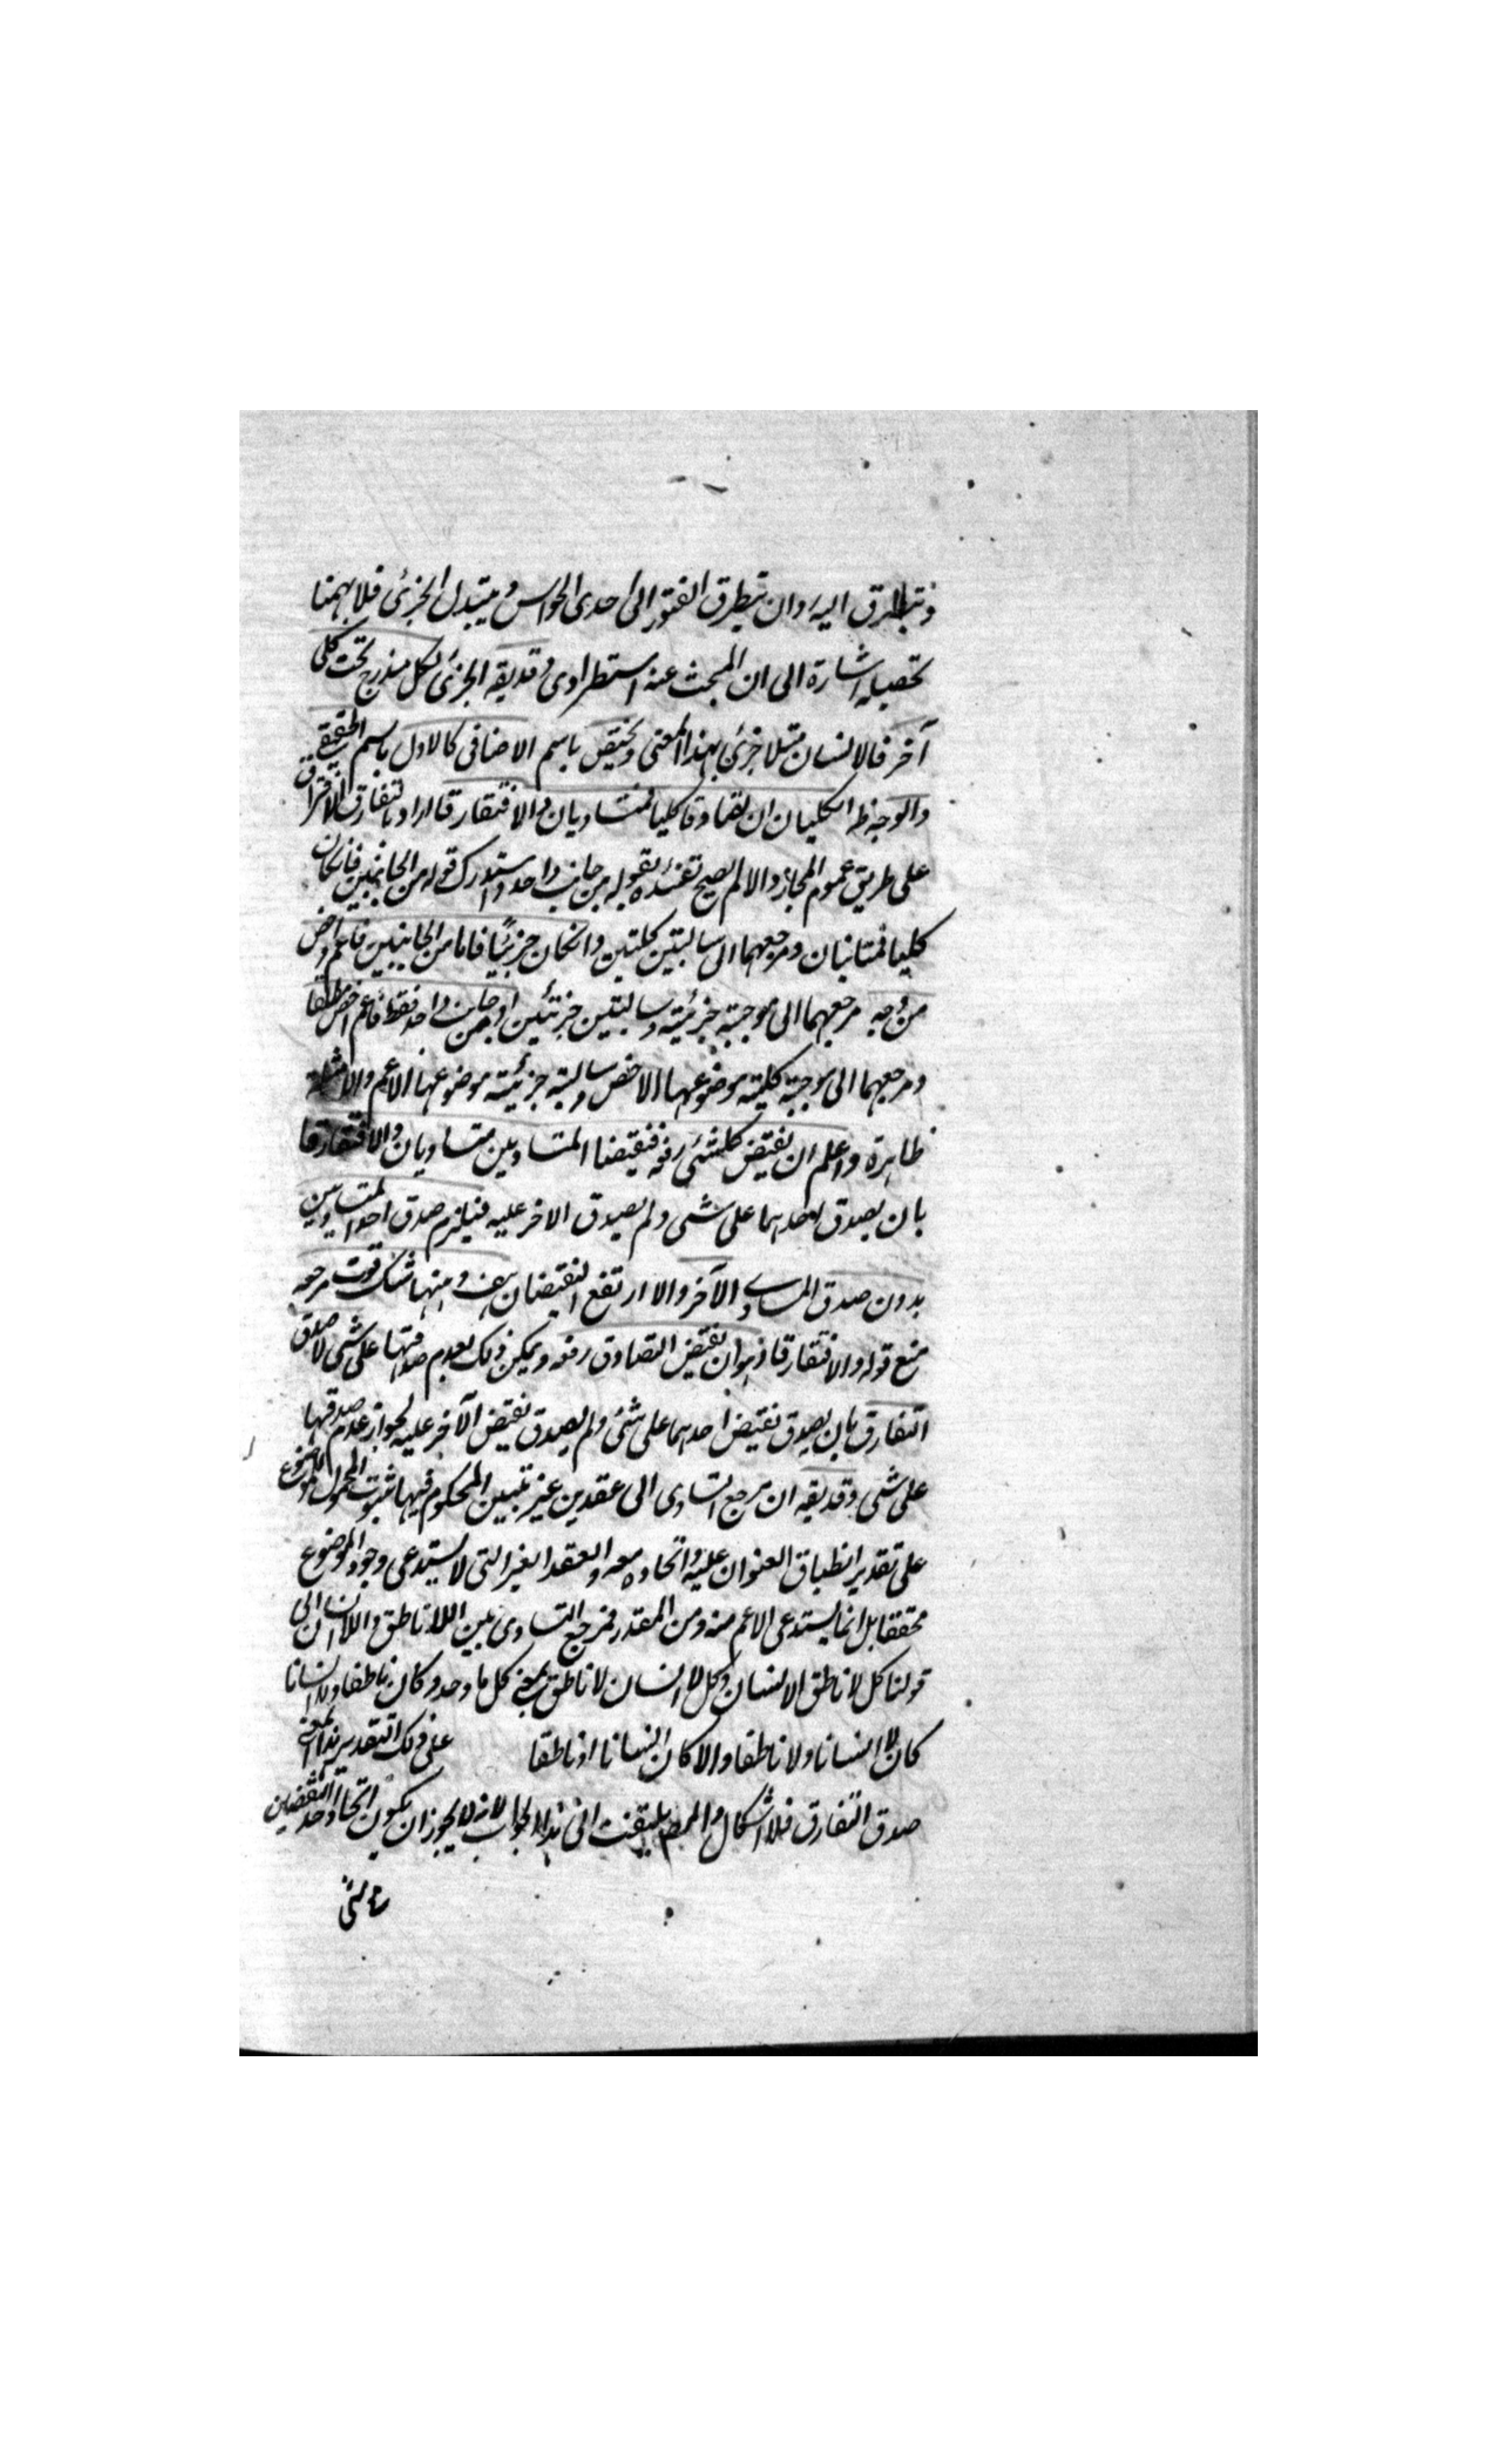 فتطرق اليه وان تيطرق الفتور الى احدى الحواس و يتبدل الجزئى فلا يهمنا
تحصيله اشارة الى ان المبحث عنه استطرادى وقد يقه الجزئى لكل مندرج تحت كلى
آخر فالانسان مثلا جزئى بهذا المعنى ويختص باسم الاضافى كالاول باسم الحقيقى
والوجه ظ الكليان ان تصادقا كليا فمتساويان والا فتفارقا اراد بالتفارق الافتراق
على طريق عموم المجاز والا لم يصح تفسيره بقوله من جانب واحد واستدرك قوله من الجانبين فانكان
كليا فمتباينان ومرجعهما الى سالبتين كليتين وانكان جزئيًا فاما من الجانبين فاعم واخص
من وجه مرجعهما الى موجبة جزئية وسالبتين جزئيتين او من جانب واحد فقط فاعم اخص مطلقا
ومرجعهما الى موجبة كلية موضوعها الاخص وسالبة جزئية موضوعها الاعم والامثلة
ظاهرة واعلم ان نقيض كلشئى رفعه فنقيضا المتساويين متساويان والا فتفارقا
بان يصدق احدهما على شى ولم يصدق الاخر عليه فيلزم صدق احد المتساويين
بدون صدق المساوى الآخر والا ارتفع النقيضان هف و ههنا شك قوى مرجعه
منع قوله والا فتفارقا اذ هو ان نقيض التصادق رفعه ويمكن ذلك بعدم صدقهما على شى لا صدق
التفارق بان يصدق نقيض احدهما على شئى ولم يصدق نقيض الآخر عليه لجواز عدم صدقهما
على شى وقد يقه ان مرجع التساوى الى عقدين غير بتيين المحكوم فيهما بثبوت المحمول للموضوع
على تقدير انطباق العنوان عليه واتحاده معه والعقد الغير البتى لا يستدعى وجود الموضوع
محققا بل انما يستدعى الاعم منه ومن المقدر فمرجع التساوى بين اللا ناطق واللا انسان الى
قولنا كل لا ناطق لا انسان وكل لا انسان لا ناطق بمعنى كل ما وجد وكان لا ناطقا ولا انسانا
كان لا انسانا ولا ناطقا والا كان انسانا او ناطقا على ذلك التقدير هذا معنى
صدق التفارق فلا اشكال والمص لم يلتفت الى هذا الجواب لانه لا يجوز ان يكون اتحاد احد النقيضين